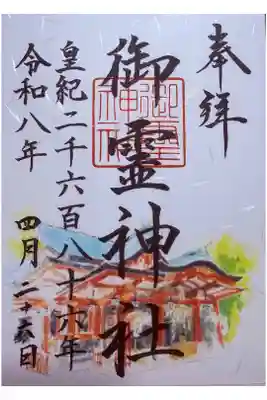 奉拝
御霊神社
皇紀二千六百八十六年
令和八年 四月二十六日